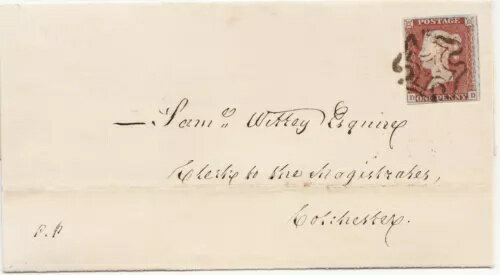 POSTAGE
D ONE PENNY D
— Sam.ˡ Wittey Esquire
Clerk to the Magistrates,
Colchester.
P.P